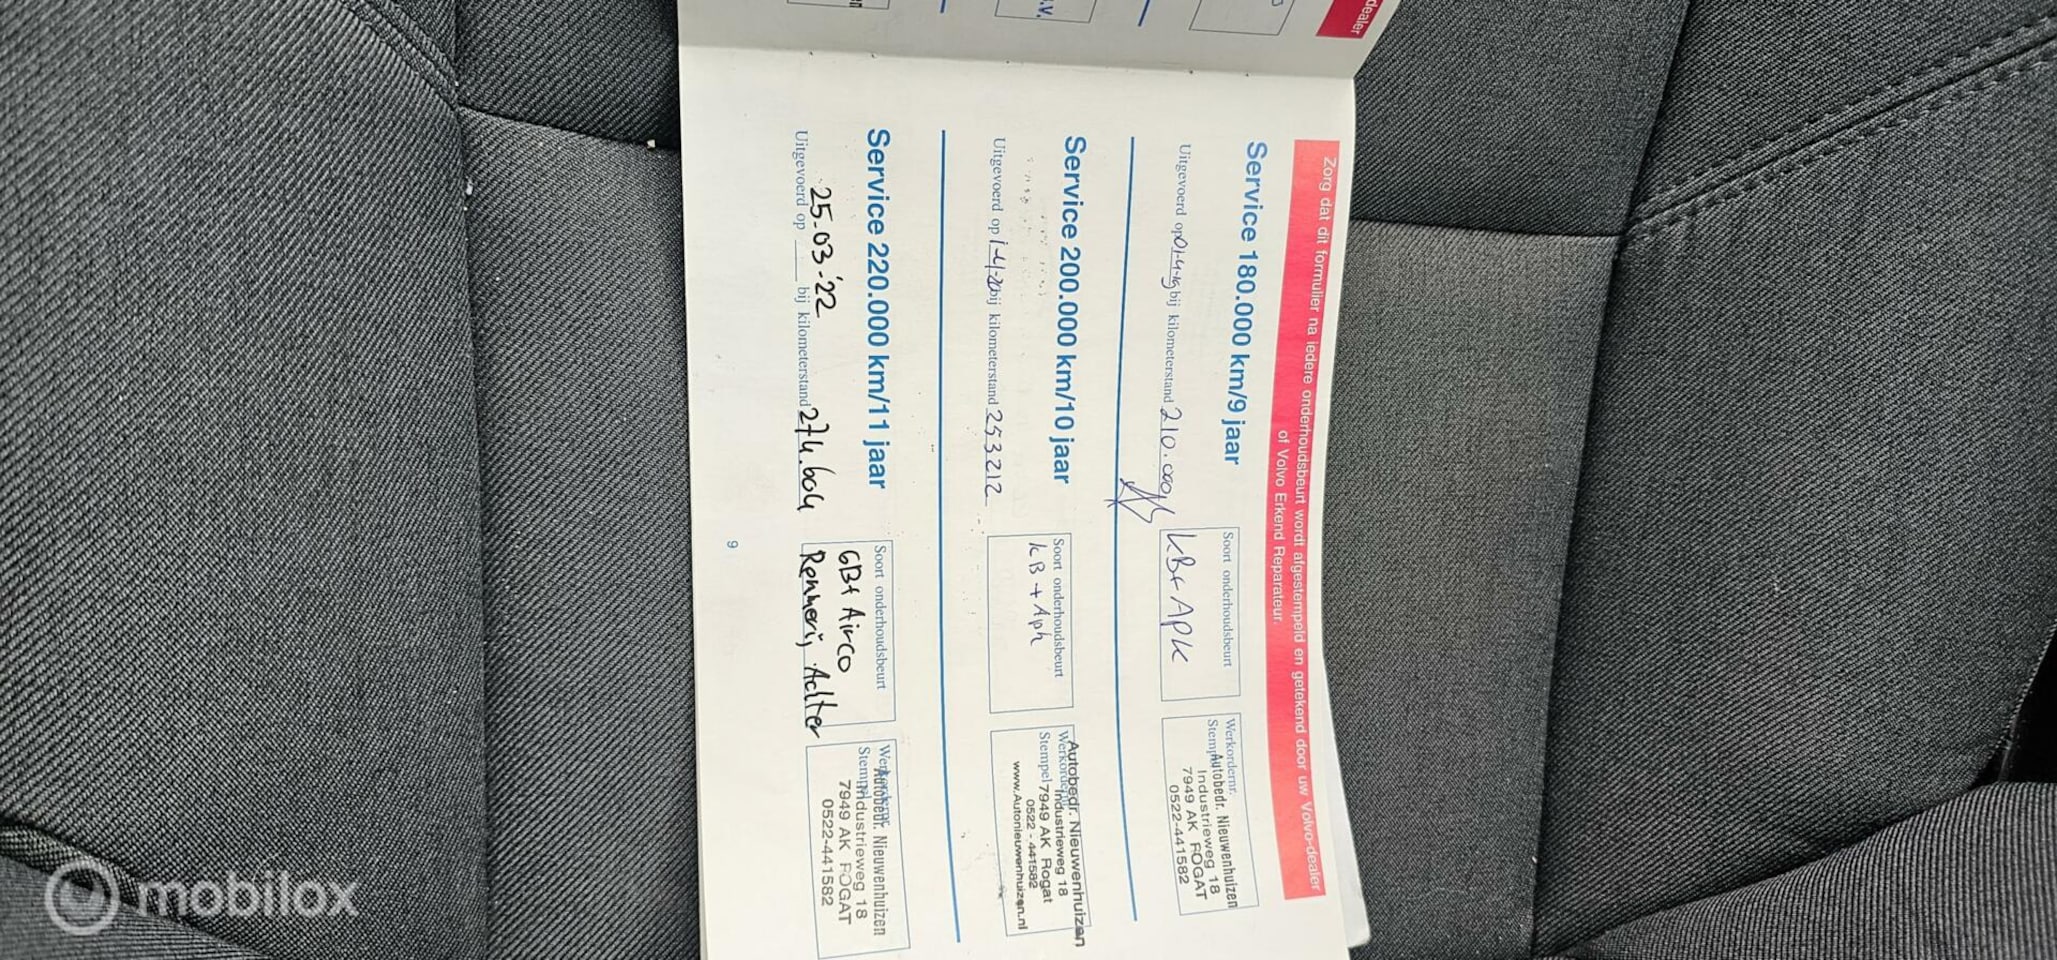 dealer
Zorg dat dit formulier na iedere onderhoudsbeurt wordt afgestempeld en getekend door uw Volvo-dealer
of Volvo Erkend Reparateur.
Service 180.000 km/9 jaar
Uitgevoerd op 01-4-19 bij kilometerstand 210.000
Soort onderhoudsbeurt
KB+ APK
Werkordernr.
Stempel
Autobedr. Nieuwenhuizen
Industrieweg 18
7949 AK ROGAT
0522-441582
Service 200.000 km/10 jaar
Uitgevoerd op 1-4-20 bij kilometerstand 253212
Soort onderhoudsbeurt
kB + Apk
Werkordernr.
Stempel
Autobedr. Nieuwenhuizen
Industrieweg 18
7949 AK Rogat
0522 - 441582
www.Autonieuwenhuizen.nl
Service 220.000 km/11 jaar
25-03-'22
Uitgevoerd op bij kilometerstand 274.604
Soort onderhoudsbeurt
GB+ Airco
Remmerij Achter
Stempel
Autobedr. Nieuwenhuizen
Industrieweg 18
7949 AK ROGAT
0522-441582
9
mobilox